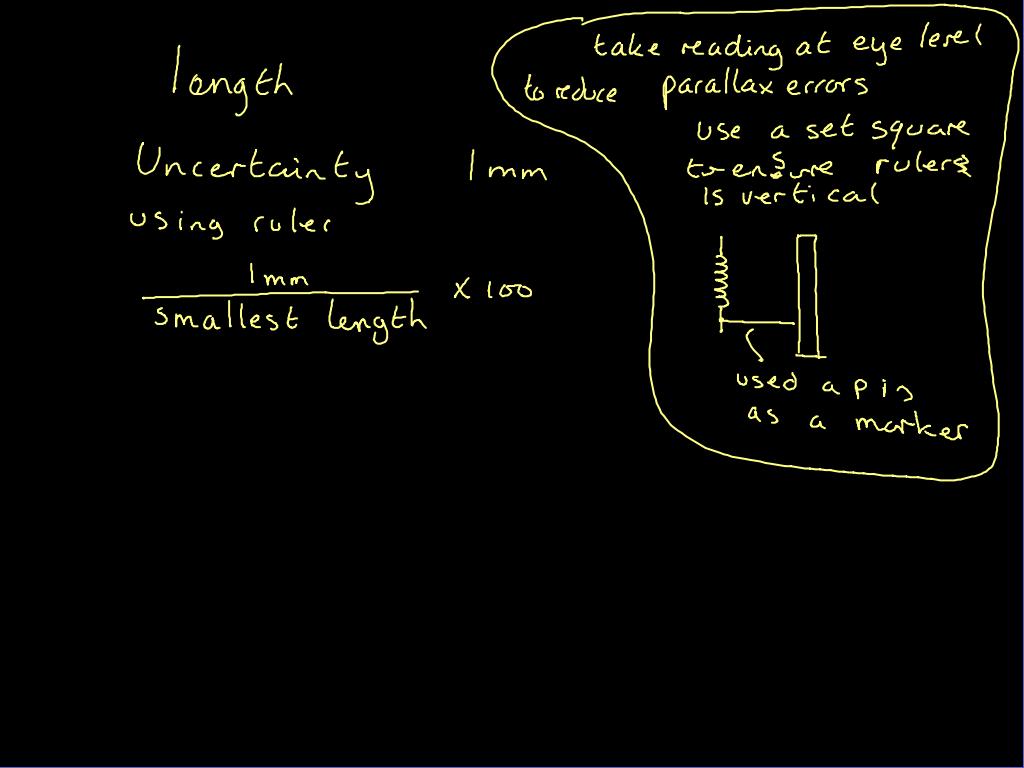 length
Uncertainty 1mm
using ruler
1mm
smallest length × 100
take reading at eye level
to reduce parallax errors
use a set square
to ensure rulers
is vertical
used a pin
as a marker